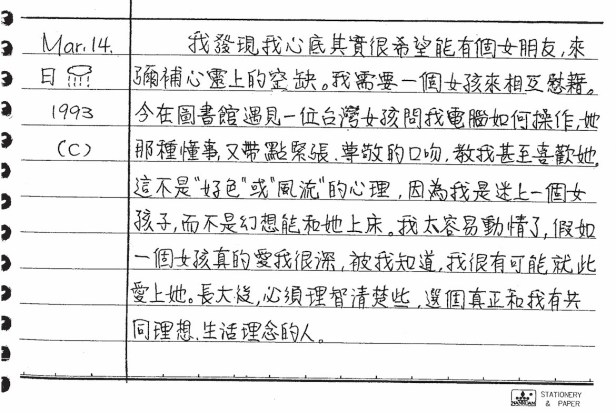 Mar.14. 我發現我心底其實很希望能有個女朋友,來
日 彌補心靈上的空缺。我需要一個女孩來相互慰藉。
1993 今在圖書館遇見一位台灣女孩問我電腦如何操作,她
(C) 那種懂事,又帶點緊張、尊敬的口吻,教我甚至喜歡她,
這不是"好色"或"風流"的心理,因為我是迷上一個女
孩子,而不是幻想能和她上床。我太容易動情了,假如
一個女孩真的愛我很深,被我知道,我很有可能就此
愛上她。長大後,必須理智清楚些,選個真正和我有共
同理想、生活理念的人。
STATIONERY
& PAPER